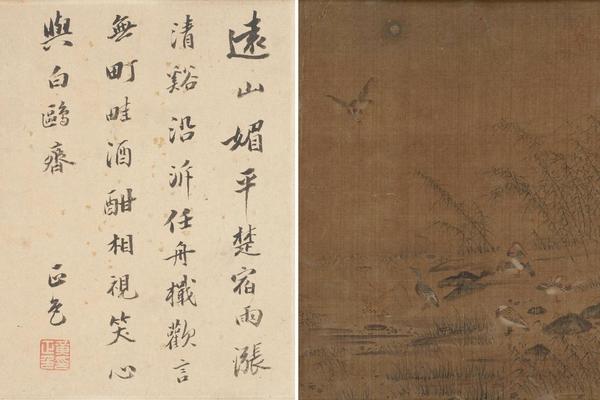 遠山媚平楚宿雨漲
清谿沿泝任舟檝歡言
無町畦酒酣相視笑心
與白鷗齊
正色